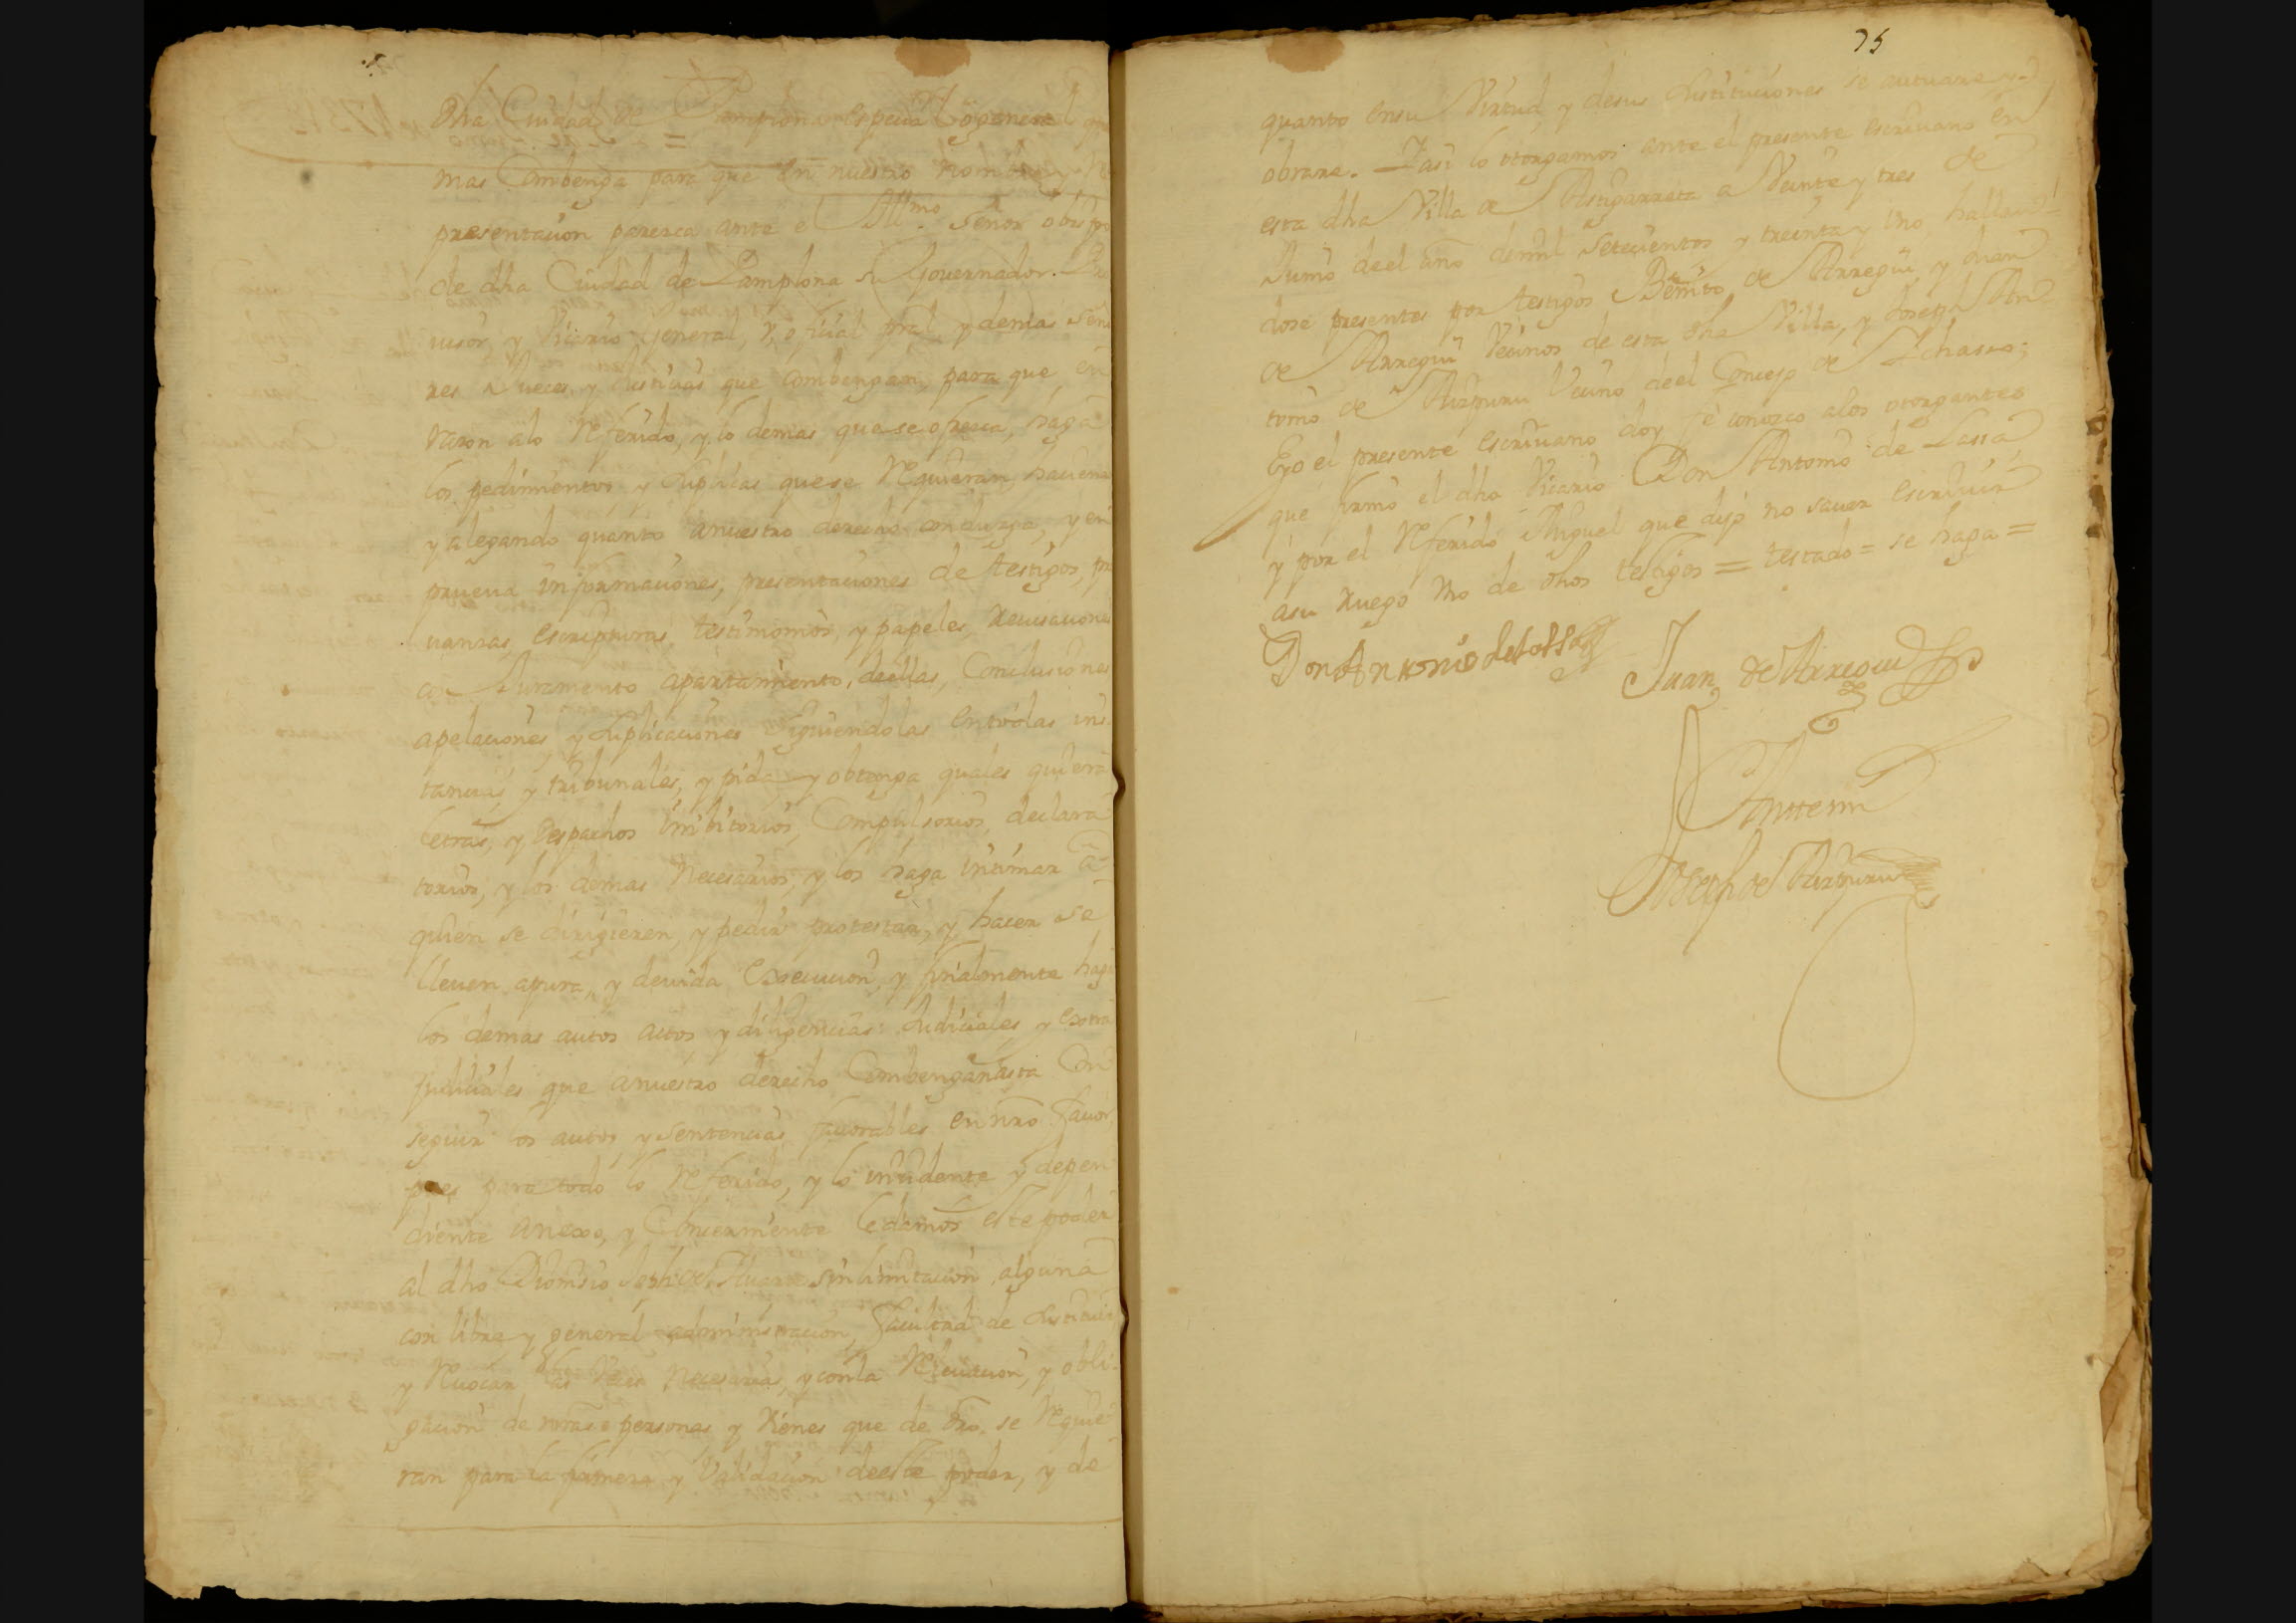 dha Ciudad de Pamplona especial o general que
mas Combenga para que en nuestro nombre y Re
presentacion parezca ante el Illmo. Señor obispo
de dha Ciudad de Pamplona su Governador Pro
uisor, y Vicario general, y oficial pral, y demas seño
res Jueces y Justicias que combengan, para que en
razon alo Referido, y lo demas que se ofrezca, haga
los pedimentos y suplicas quese Requieran, haciendo
y alegando quanto anuestro derecho conduzga, y en
prueua informaciones, presentaciones de testigos, pro
uanzas, escripturas, testimonios, y papeles, Recusaciones
con Juramento apartamiento, deellas, Conclusiones
apelaciones, y suplicaciones siguiendolas entodas ins
tancias, y tribunales, y pida y obtenga quales quiera
letras, y despachos inibitorios, Compulsorios, declara
torios, y los demas necesarios, y los haga intimar a
quien se dirigieren, y pedir protestar, y hacer se
lleuen apura, y deuida execucion, y finalmente haga
los demas autos actos y diligencias Judiciales, y extra
judiciales que anuestro derecho Combengan asta Con
seguir los autos, y sentencias favorables en nro favor,
pues para todo lo Referido, y lo incidente y depen
diente anexo, y Concerniente ledamos este poder
al dho Dionisio sin limitacion alguna
con libre y general administracion, facultad de sustituir
y Reuocar las veces necesarias, y con la Releuacion, y obli
gacion de nras personas y vienes que de dro. se Requie
ran para la firmeza y validacion deeste poder, y de
75
quanto ensu virtud, y desus sustituciones se autuare y
obrare. Y asi lo otorgamos ante el presente escriuano en
esta dha Villa de Astigarreta a veinte y tres de
Junio deel año demil setecientos y treinta y uno, hallan
dose presentes por testigos Benito de Arregui y Juan
de Arregui vecinos de esta dha Villa, y Joseph An
tonio de Aizpuru vecino deel Concejo de Ichasso;
E yo el presente escriuano doy fe conozco alos otorgantes
que firmo el dho Vicario Don Antonio de Lassa
y por el Referido Miguel que dijo no sauer escriuir
asu Ruego uno de dhos testigos = testado = se haga =
Don Antonio de Lassa Juan de Arregui
Ante mi
Joseph de Aizpuru